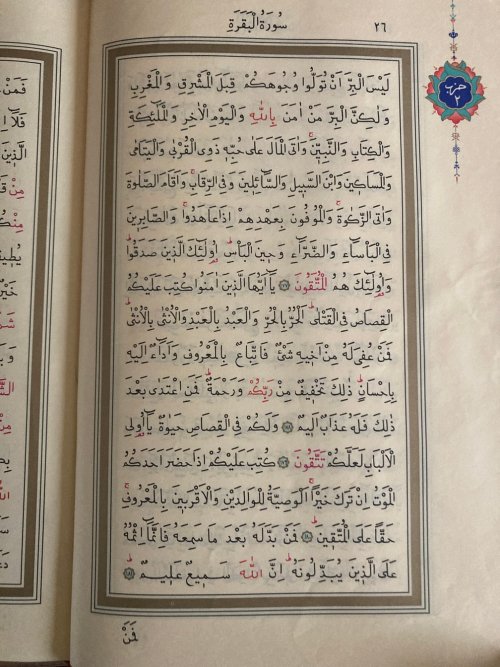 سُورَةُ الْبَقَرَةِ
٢٦
حزب
٢
لَيْسَ الْبِرَّ اَنْ تُوَلُّوا وُجُوهَكُمْ قِبَلَ الْمَشْرِقِ وَالْمَغْرِبِ
وَلٰكِنَّ الْبِرَّ مَنْ اٰمَنَ بِاللّٰهِ وَالْيَوْمِ الْاٰخِرِ وَالْمَلٰٓئِكَةِ
وَالْكِتَابِ وَالنَّبِيّٖنَۚ وَاٰتَى الْمَالَ عَلٰى حُبِّهٖ ذَوِي الْقُرْبٰى وَالْيَتَامٰى
وَالْمَسَاكٖينَ وَابْنَ السَّبٖيلِ وَالسَّٓائِلٖينَ وَفِي الرِّقَابِۚ وَاَقَامَ الصَّلٰوةَ
وَاٰتَى الزَّكٰوةَۚ وَالْمُوفُونَ بِعَهْدِهِمْ اِذَا عَاهَدُواۚ وَالصَّابِرٖينَ
فِي الْبَأْسَٓاءِ وَالضَّرَّٓاءِ وَحٖينَ الْبَأْسِۜ اُو۬لٰٓئِكَ الَّذٖينَ صَدَقُواۜ
وَاُو۬لٰٓئِكَ هُمُ الْمُتَّقُونَ ﴿١٧٧﴾ يَٓا اَيُّهَا الَّذٖينَ اٰمَنُوا كُتِبَ عَلَيْكُمُ
الْقِصَاصُ فِي الْقَتْلٰىۜ اَلْحُرُّ بِالْحُرِّ وَالْعَبْدُ بِالْعَبْدِ وَالْاُنْثٰى بِالْاُنْثٰىۜ
فَمَنْ عُفِيَ لَهُ مِنْ اَخٖيهِ شَيْءٌ فَاتِّبَاعٌ بِالْمَعْرُوفِ وَاَدَٓاءٌ اِلَيْهِ
بِاِحْسَانٍۜ ذٰلِكَ تَخْفٖيفٌ مِنْ رَبِّكُمْ وَرَحْمَةٌۜ فَمَنِ اعْتَدٰى بَعْدَ
ذٰلِكَ فَلَهُ عَذَابٌ اَلٖيمٌ ﴿١٧٨﴾ وَلَكُمْ فِي الْقِصَاصِ حَيٰوةٌ يَٓا اُو۬لِي
الْاَلْبَابِ لَعَلَّكُمْ تَتَّقُونَ ﴿١٧٩﴾ كُتِبَ عَلَيْكُمْ اِذَا حَضَرَ اَحَدَكُمُ
الْمَوْتُ اِنْ تَرَكَ خَيْراًۚ اَلْوَصِيَّةُ لِلْوَالِدَيْنِ وَالْاَقْرَبٖينَ بِالْمَعْرُوفِۚ
حَقاًّ عَلَى الْمُتَّقٖينَۜ ﴿١٨٠﴾ فَمَنْ بَدَّلَهُ بَعْدَ مَا سَمِعَهُ فَاِنَّمَٓا اِثْمُهُ
عَلَى الَّذٖينَ يُبَدِّلُونَهُۜ اِنَّ اللّٰهَ سَمٖيعٌ عَلٖيمٌۜ ﴿١٨١﴾
فَمَنْ